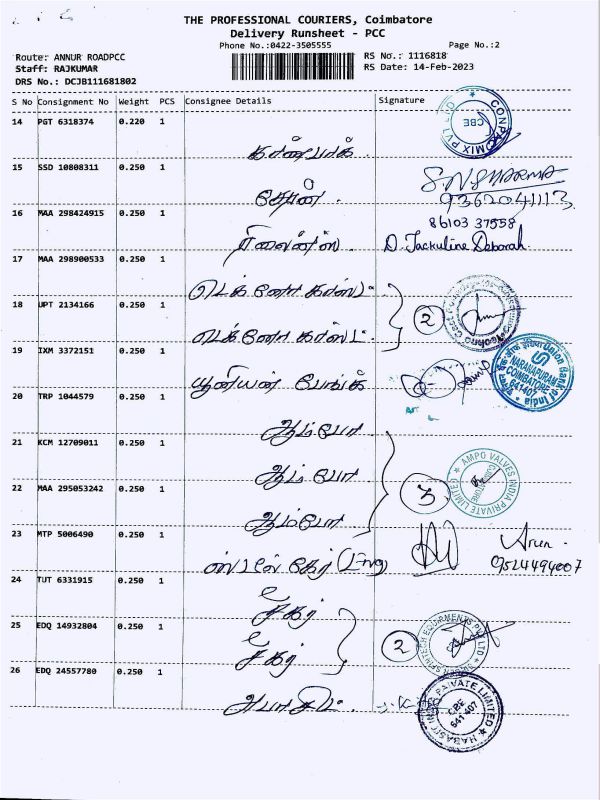 THE PROFESSIONAL COURIERS, Coimbatore
Delivery Runsheet - PCC
Phone No.:0422-3505555
Page No.:2
Route: ANNUR ROADPCC
RS No.: 1116818
Staff: RAJKUMAR
RS Date: 14-Feb-2023
DRS No.: DCJB111681802
S No Consignment No Weight PCS Consignee Details Signature
14 PGT 6318374 0.220 1
CBE
கான்பாக்
15 SSD 10808311 0.250 1
S.N SHARMA
சேரன்
9362041113
16 MAA 298424915 0.250 1
86103 37558
ரிலைன்ஸ்
D. Jackuline Deborah
17 MAA 298900533 0.250 1
டெக்னோ காஸ்ட்
18 UPT 2134166 0.250 1
2
டெக்னோ காஸ்ட்
19 IXM 3372151 0.250 1
Union Bank of India
NARANAPURAM
COIMBATORE
641407
யூனியன் பேங்க்
20 TRP 1044579 0.250 1
ஆம்போ
21 KCM 12709011 0.250 1
AMPO VALVES INDIA PRIVATE LIMITED
COIMBATORE
ஆம்போ
22 MAA 295053242 0.250 1
3
ஆம்போ
23 MTP 5006490 0.250 1
Arun
(Eng)
9524494007
24 TUT 6331915 0.250 1
25 EDQ 14932804 0.250 1
2
26 EDQ 24557780 0.250 1
PRIVATE LIMITED
CBE
641 407